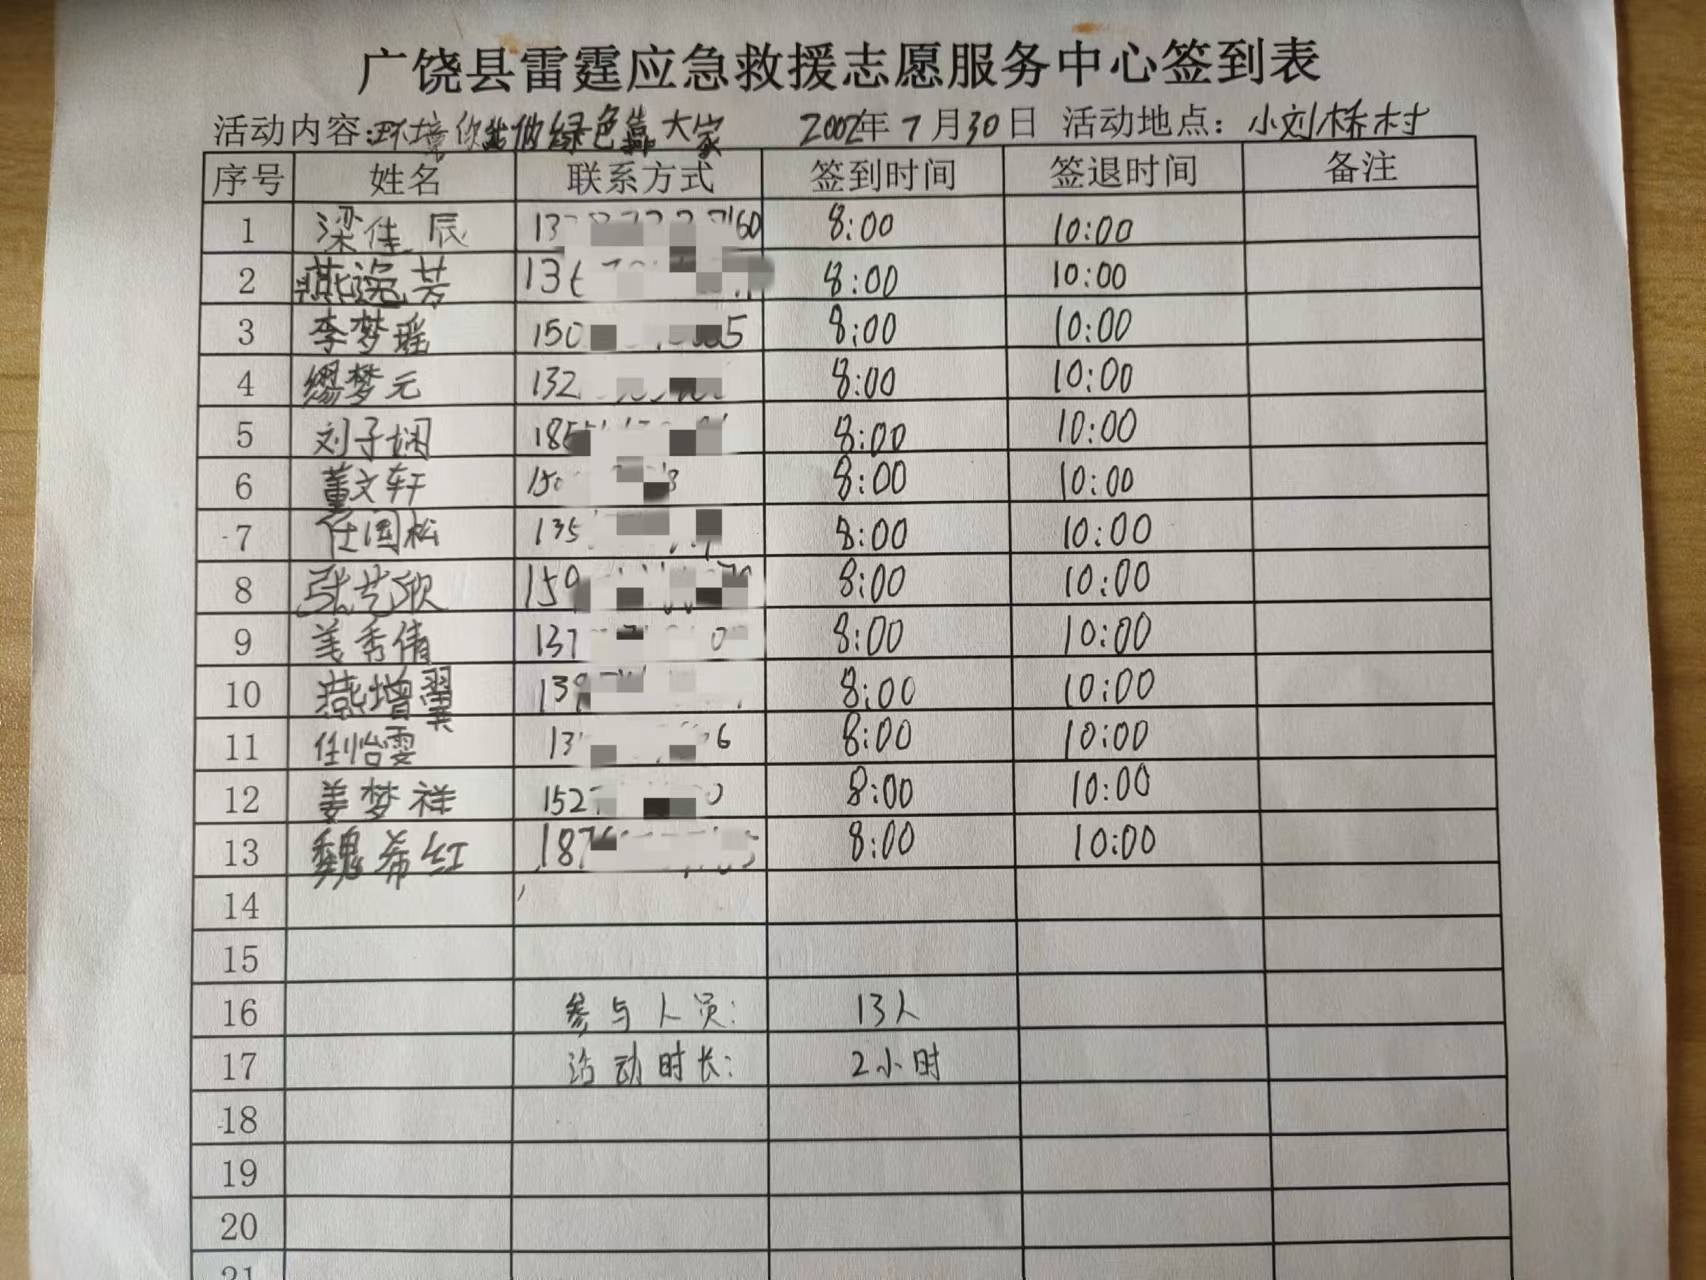 广饶县雷霆应急救援志愿服务中心签到表
活动内容:环境你我他绿色靠大家 2002年7月30日 活动地点:小刘桥村
序号 姓名 联系方式 签到时间 签退时间 备注
1 梁佳辰 13 160 8:00 10:00
2 燕逸芳 13 8:00 10:00
3 李梦瑶 150 5 8:00 10:00
4 缪梦元 132 8:00 10:00
5 刘子娴 18 8:00 10:00
6 董文轩 150 8 8:00 10:00
7 任国松 135 8:00 10:00
8 张艺欣 159 8:00 10:00
9 姜秀倩 137 0 8:00 10:00
10 燕增翼 139 8:00 10:00
11 任怡雯 13 6 8:00 10:00
12 姜梦祥 152 0 8:00 10:00
13 魏希红 187 8:00 10:00
14
15
16 参与人员: 13人
17 活动时长: 2小时
18
19
20
21